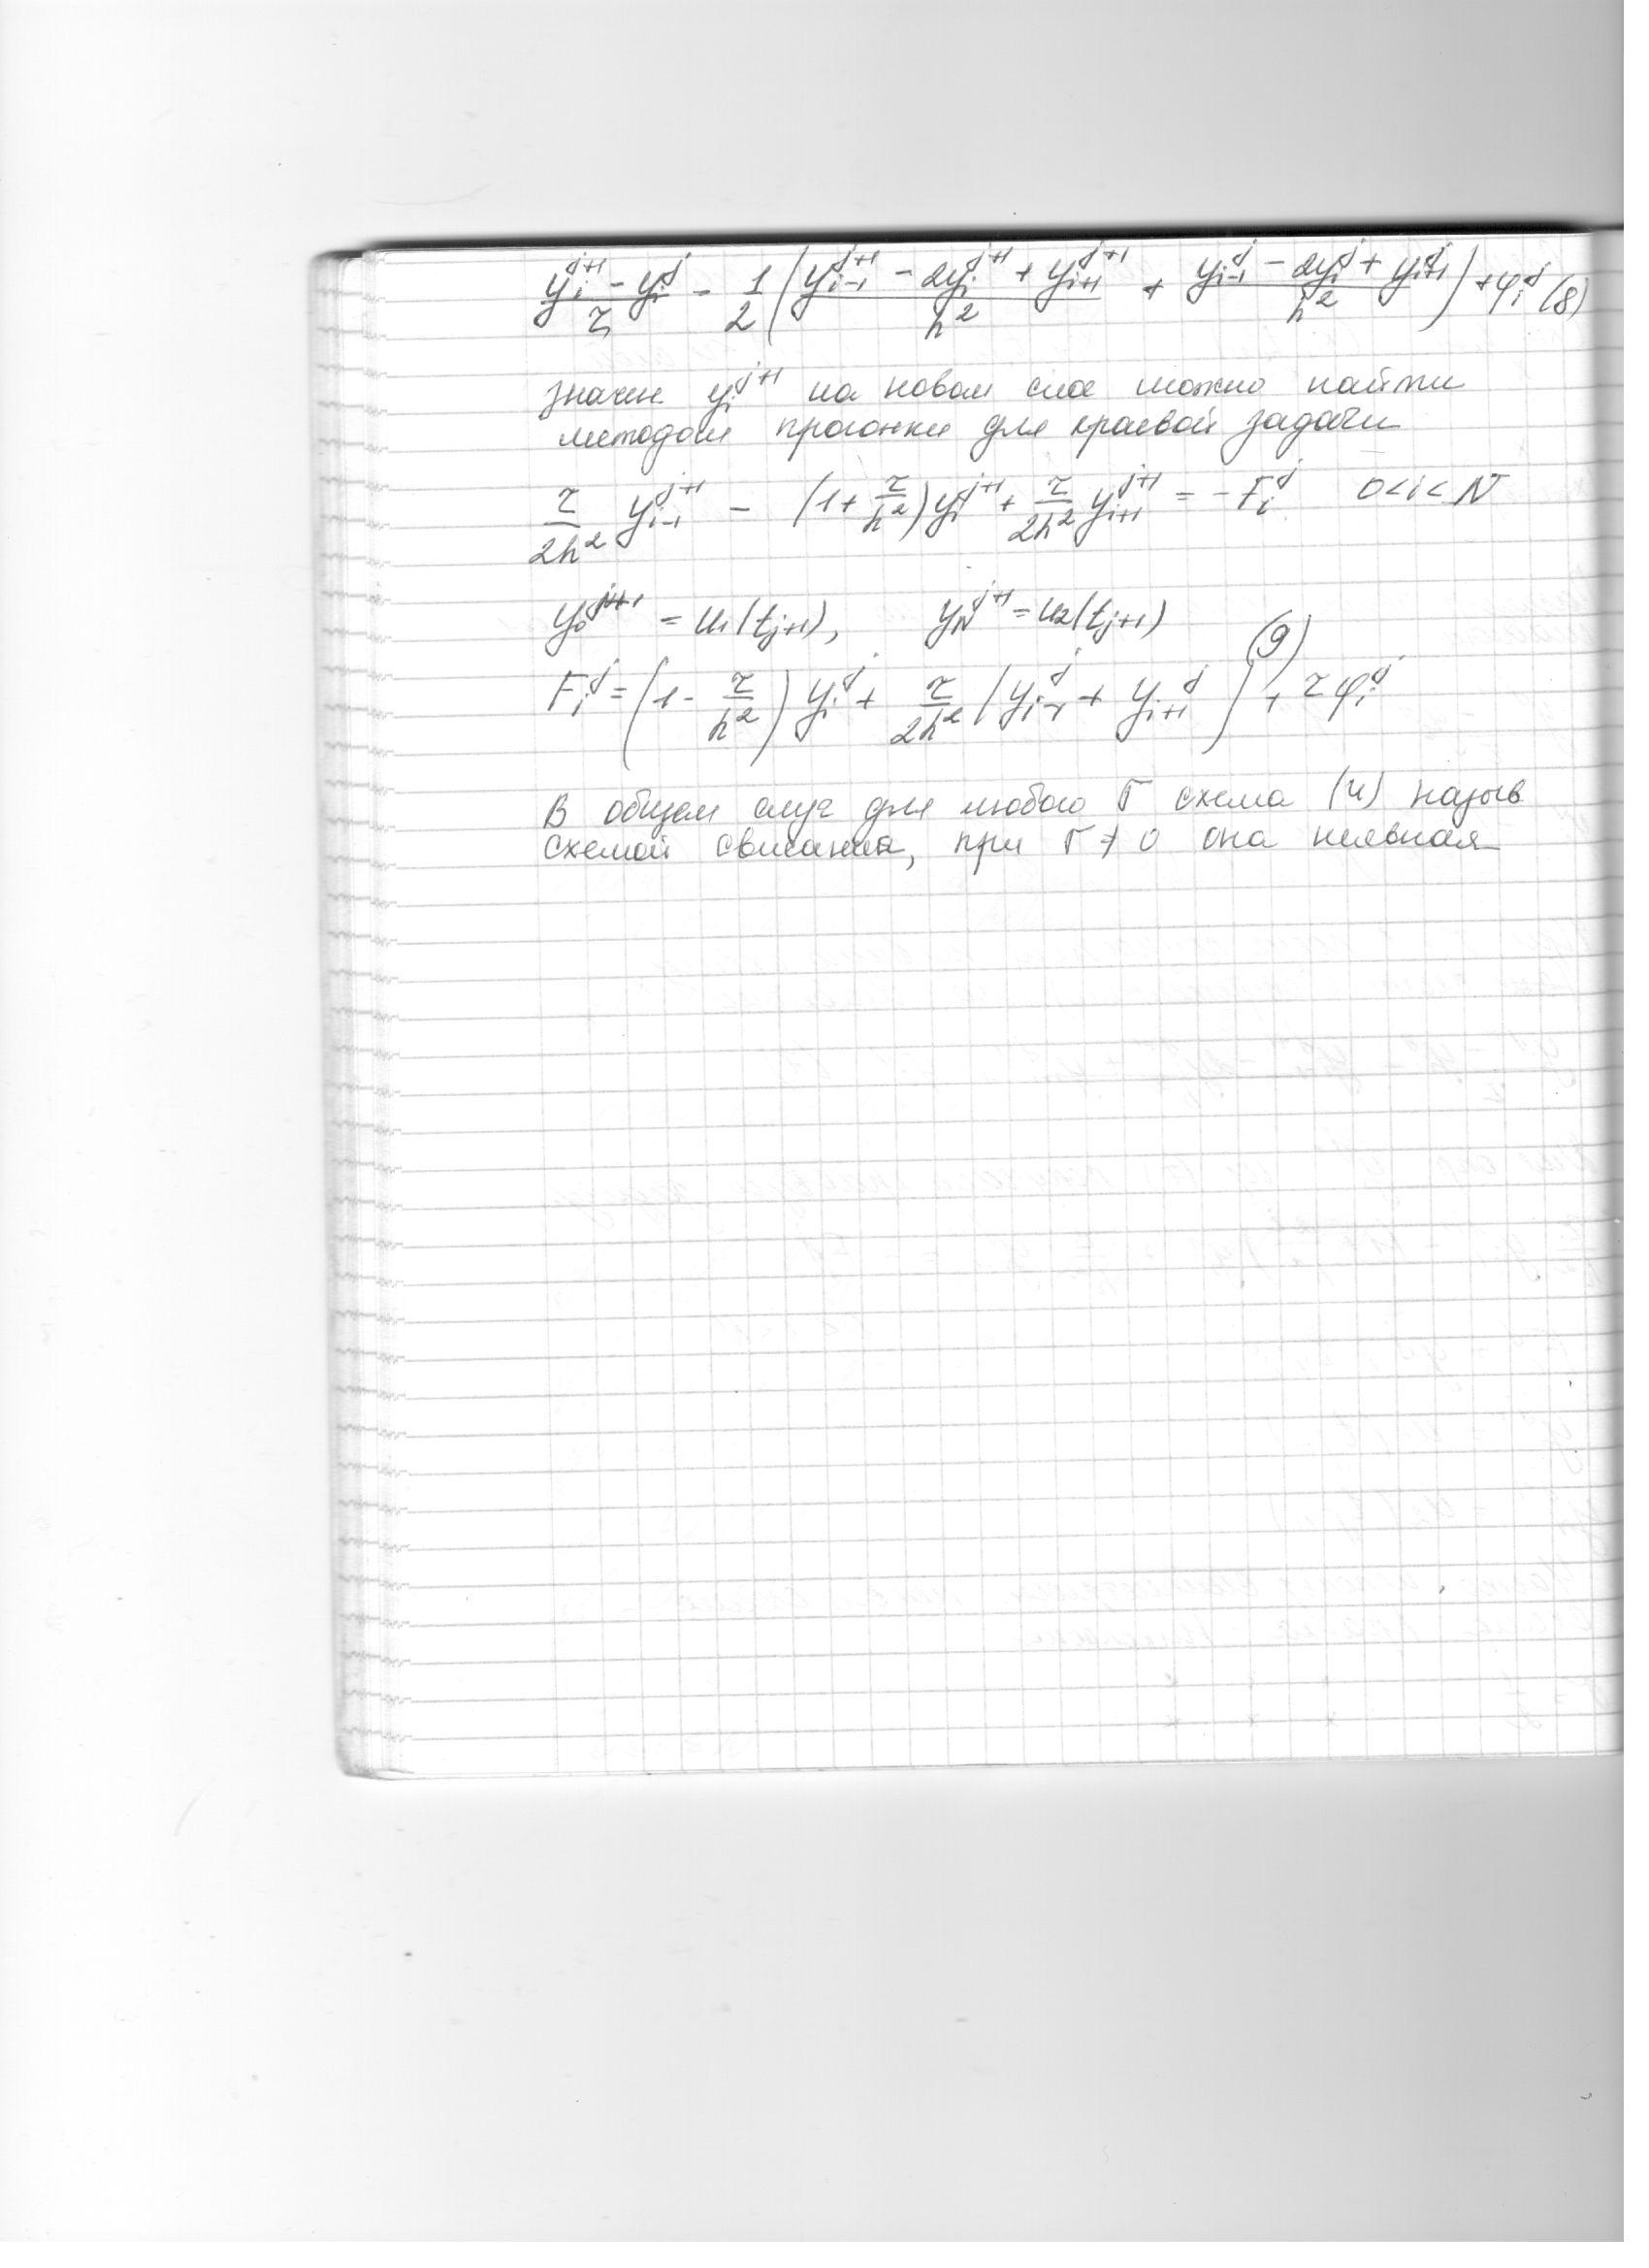 (y_i^{j+1} - y_i^j)/τ = 1/2 ((y_{i-1}^{j+1} - 2y_i^{j+1} + y_{i+1}^{j+1})/h^2 + (y_{i-1}^j - 2y_i^j + y_{i+1}^j)/h^2) + φ_i^j (8)
значен y_i^{j+1} на новом слое можно найти
методом прогонки для краевой задачи
τ/2h^2 y_{i-1}^{j+1} - (1 + τ/h^2) y_i^{j+1} + τ/2h^2 y_{i+1}^{j+1} = - F_i^j 0<i<N
y_0^{j+1} = u_1(t_{j+1}), y_N^{j+1} = u_2(t_{j+1})
(9)
F_i^j = (1 - τ/h^2) y_i^j + τ/2h^2 (y_{i-1}^j + y_{i+1}^j) + τφ_i^j
В общем случ для любого Г схема (4) назыв
схемой с при Г ≠ 0 она неявная